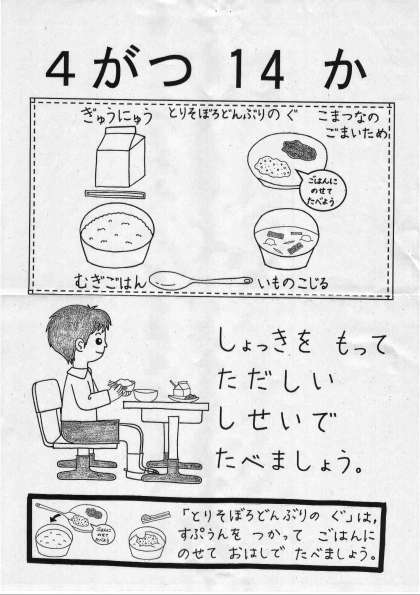 ４がつ 14 か
ぎゅうにゅう
とりそぼろどんぶりの ぐ
こまつなの
ごまいため
ごはんに
のせて
たべよう
むぎごはん
いものこじる
しょっきを もって
ただしい
しせいで
たべましょう。
ごはんに
のせて
たべよう
「とりそぼろどんぶりの ぐ」は,
すぷうんを つかって ごはんに
のせて おはしで たべましょう。